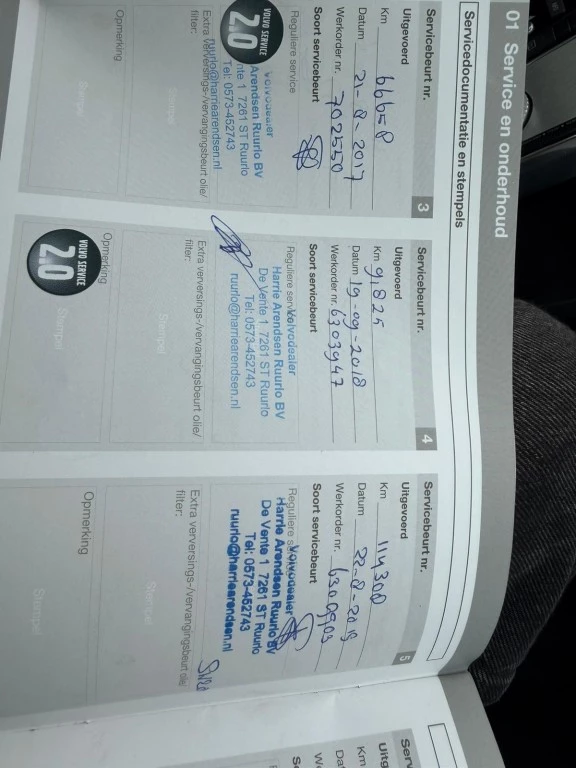 01 Service en onderhoud
Servicedocumentatie en stempels
Servicebeurt nr. 3
Uitgevoerd
Km 66658
Datum 21-8-2017
Werkorder nr. 702550
Soort servicebeurt
Reguliere service
Volvodealer
Arendsen Ruurlo BV
nte 1 7261 ST Ruurlo
Tel: 0573-452743
ruurlo@harriearendsen.nl
VOLVO SERVICE
2.0
Extra verversings-/vervangingsbeurt olie/
filter:
Stempel
Opmerking
Stempel
Servicebeurt nr. 4
Uitgevoerd
Km 91825
Datum 19-09-2018
Werkorder nr. 6303947
Soort servicebeurt
Reguliere service
Volvodealer
Harrie Arendsen Ruurlo BV
De Vente 1 7261 ST Ruurlo
Tel: 0573-452743
ruurlo@harriearendsen.nl
Extra verversings-/vervangingsbeurt olie/
filter:
Stempel
Opmerking
VOLVO SERVICE
2.0
Stempel
Servicebeurt nr. 5
Uitgevoerd
Km 114300
Datum 22-8-2019
Werkorder nr.
Soort servicebeurt
Reguliere
Volvodealer
Harrie Arendsen Ruurlo BV
De Vente 1 7261 ST Ruurlo
Tel: 0573-452743
ruurlo@harriearendsen.nl
Extra verversings-/vervangingsbeurt olie/
filter:
Stempel
Opmerking
Stempel
Serv
Uitg
Km
Dat
We
So